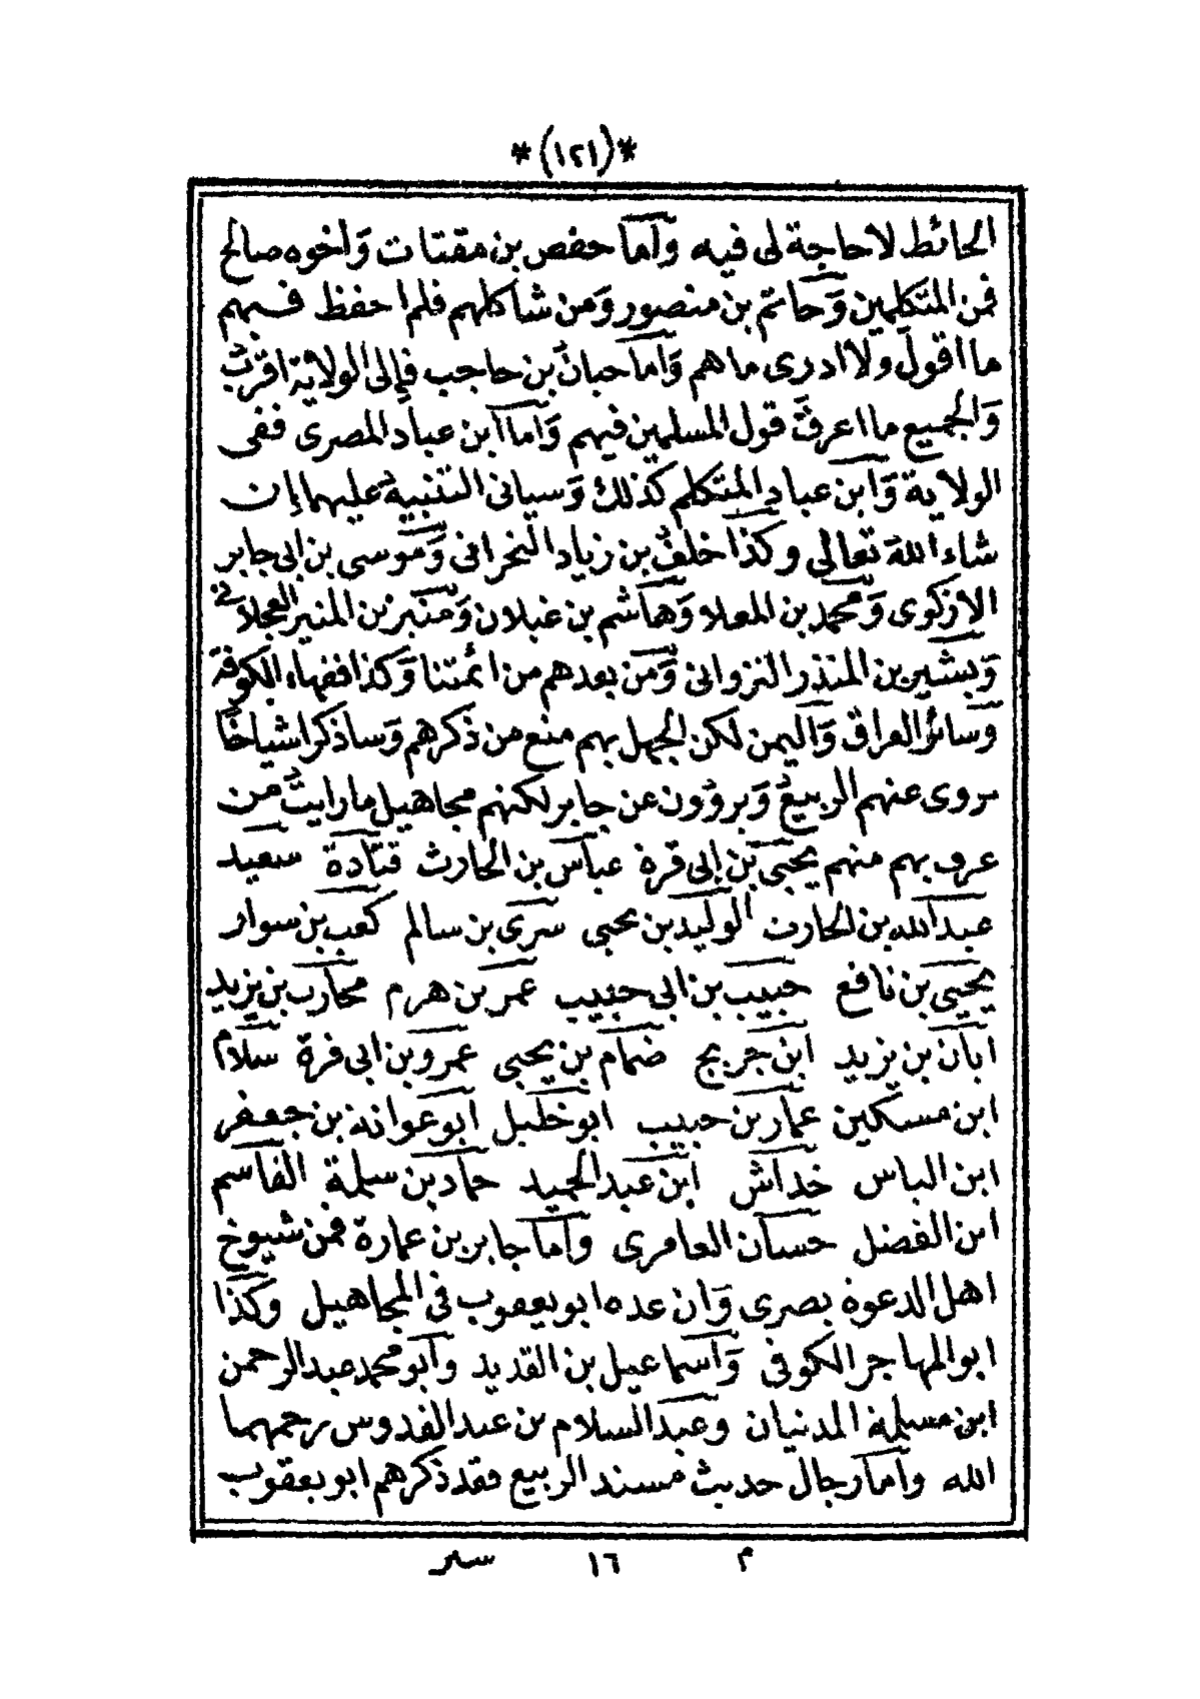 *(١٢١)*
الحائط لا حاجة لى فيه وأما حفص بن مقتات وَاخوه صالح
فمن المتكلمين وَحاتم بن منصور وَمن شاكلهم فلم احفظ فيهم
ما اقول ولا ادرى ما هم وَاما حبان بن حاجب فإلى الولاية اقربُ
وَالجميع ما اعرفُ قول المسلمين فيهم وَأما ابن عباد المصرى ففى
الولاية وَابن عباد المتكلم كذلك وَسياتى التنبيهُ عليهما إن
شاء الله تعالى وكذا خلفُ بن زياد البحرانى وَموسى بن ابى جابر
الازكوى وَمحمد بن المعلا وَهاشم بن غيلان وَمنير بن المنير العجلانى
وَبشير بن المنذر النزوانى وَمن بعدهم من ائمتنا وَكذا فقهاء الكوفة
وَسائر العراق وَاليمن لكن الجهل بهم منع من ذكرهم وَساذكر اشياخًا
يروى عنهم الربيعُ وَيروُون عن جابر لكنهم مجاهيل ما رايتُ من
عرف بهم منهم يحيى بن ابى قرة عباس بن الحارث قتادة سعيد
عبد الله بن الحارث الوليد بن يحيى سرى بن سالم كعب بن سوار
يحيى بن نافع حبيب بن ابى حبيب عمر بن هرم محارب بن يزيد
ابان بن يزيد ابن جريج ضمام بن يحيى عمرو بن ابى قرة سلام
ابن مسكين عمار بن حبيب ابو خليل ابو عوانة بن جعفر
ابن الياس خداش ابن عبد الحميد حماد بن سلمة القاسم
ابن الفضل حسان العامرى وأما جابر بن عمارة فمن شيوخ
اهل الدعوة بصرى وَان عده ابو يعقوب فى المجاهيل وكذا
ابو المهاجر الكوفى وَاسماعيل بن القديد وابو محمد عبد الرحمن
ابن مسلمة المدنيان وعبد السلام بن عبد القدوس رحمهما
الله وأما رجال حديث مسند الربيع فقد ذكرهم ابو يعقوب
م ١٦ سير